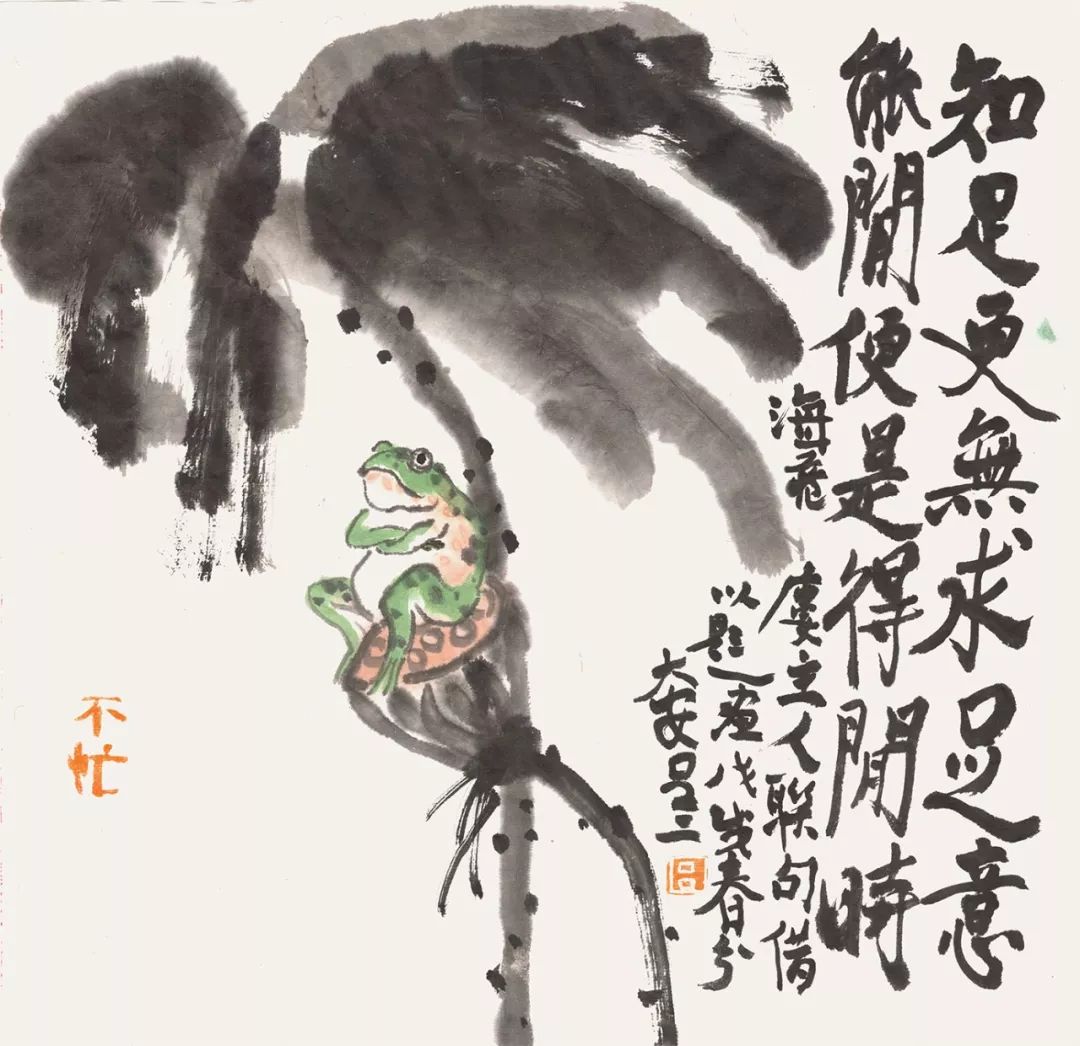 知足更無求足意
能閒便是得閒時
海
廔主人聯句借
以題畫戊戌春分
大安吕三
吕
不忙